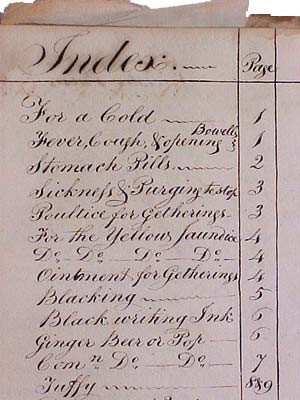 Index. Page
For a Cold 1
Fever, Cough, & opening Bowells } 1
Stomach Pills 2
Sickness & Purging to stop 3
Poultice for Getherings 3
For the Yellow Jaundice 4
Do Do Do Do 4
Ointment for Getherings 4
Blacking 5
Black writing Ink 6
Ginger Beer or Pop 6
Comn Do Do 7
Tuffy 8&9